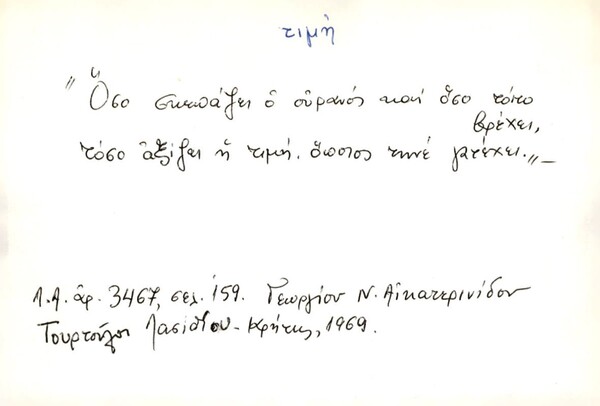 τιμή
"Ὅσο σκεπάζει ὁ οὐρανός καί ὅσο τόπο
βρέχει,
τόσο ἀξίζει ἡ τιμή. ὅποιος τηνέ γατέχει."_
Λ.Α. ἀρ. 3467, σελ. 159. Γεωργίου Ν. Αἰκατερινίδου
Τουρτούλοι Λασιθίου - Κρήτης, 1969.